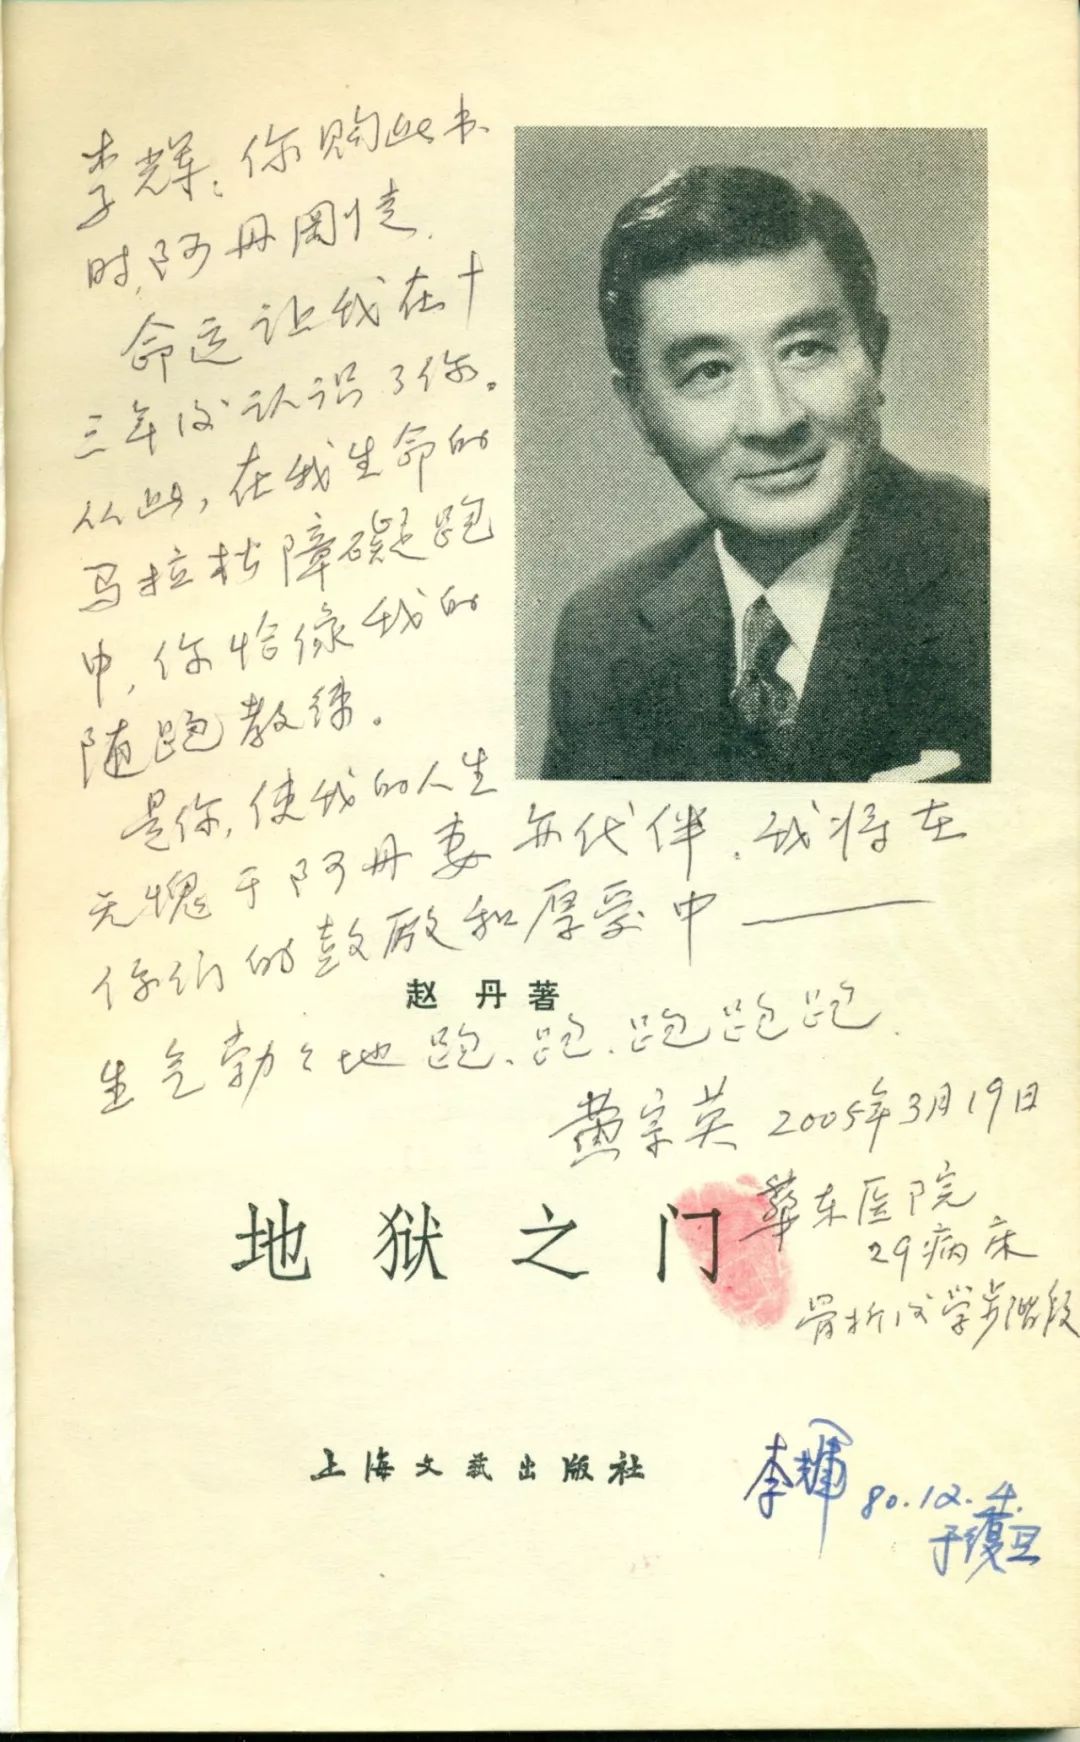 李辉：你购此书
时，阿丹刚走．
命运让我在十
三年后认识了你。
从此，在我生命的
马拉松障碍跑
中，你恰像我的
随跑教练。
是你，使我的人生
无愧于阿丹妻亦代伴．我将在
你们的鼓励和厚爱中——
赵 丹 著
生气勃々地跑、跑、跑跑跑．
黄宗英 2005年3月19日
地 狱 之 门
华东医院
29病床
骨折后学步阶段
上海文艺出版社
李辉 80.12.4.
于复旦